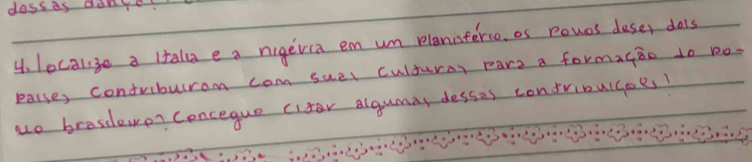 dessas danço!
4. localize a Italia e a nigérra em um planisfério. os povos deses dois
paises contribuiram com suas culturas para a formação do po-
vo brasileiro? Concegue citar algumas dessas contribuições!